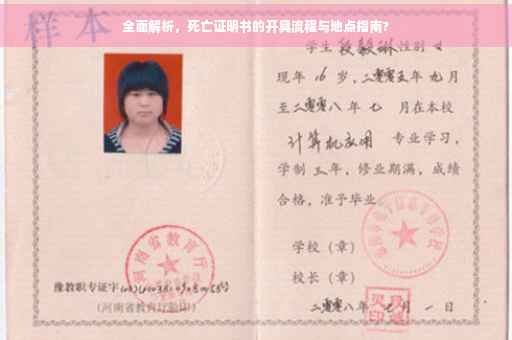 样本
全面解析，死亡证明书的开具流程与地点指南？
学生段毅琳性别女
现年16岁，二零零五年九月
至二零零八年七月在本校
计算机应用 专业学习，
学制三年，修业期满，成绩
合格，准予毕业。
学校（章）
校长（章）
二零零八年 月一日
河南省教育厅
豫教职专证字
（河南省教育厅验印）